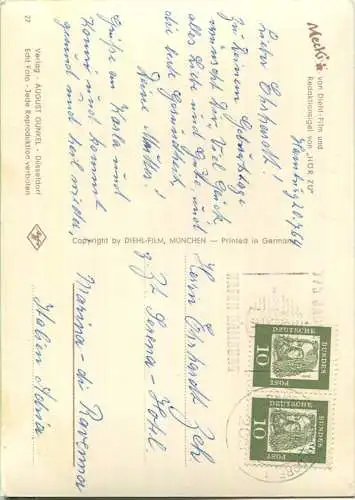 Mecki
von Diehl-Film und
Redaktionsigel von „HÖR ZU"
Hamburg 20/7.64
Lieber Ehrhardt!
Zu Deinem Geburtstage
wünscht Dir viel Glück
alles Liebe und Gute, und
die beste Gesundheit
Deine Mutter!
Grüße an Karla und
Kommt
gesund und
22
Verlag - AUGUST GUNKEL - Düsseldorf
Echt Foto - Jede Reproduktion verboten
Agfa
Copyright by DIEHL-FILM, MÜNCHEN — Printed in Germany
Herrn Ehrhardt Zeh
z. Zt. Sirena-Hotel.
Marina-di Ravenna
Italien
DEUTSCHE
BUNDES
POST
10
DEUTSCHE
BUNDES
POST
10